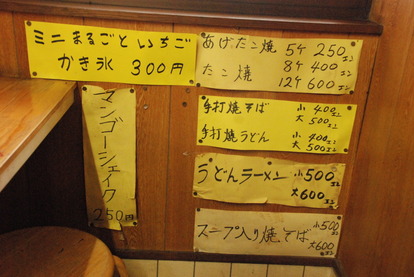 ミニまるごといちご
かき氷 300円
マンゴーシェイク
250円
あげたこ焼 5ケ 250エン
たこ焼 8ケ 400エン
12ケ 600エン
手打焼そば 小 400エン
大 500エン
手打焼うどん 小 400エン
大 500エン
うどんラーメン 小 500エン
大 600エン
スープ入り焼そば 小 500エン
大 600エン